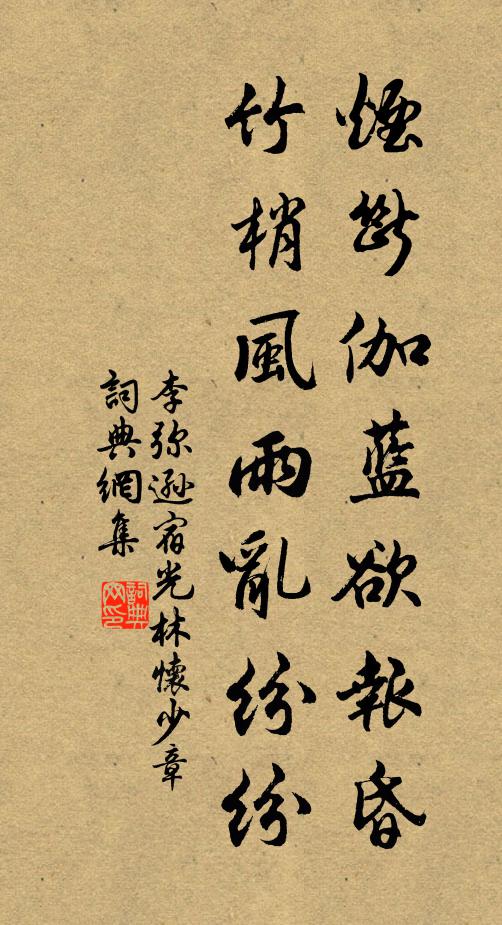 煙斷伽藍欲報昏
竹梢風雨亂紛紛
李弥遜宿光林懷少章
詞典網集
詞典
网印